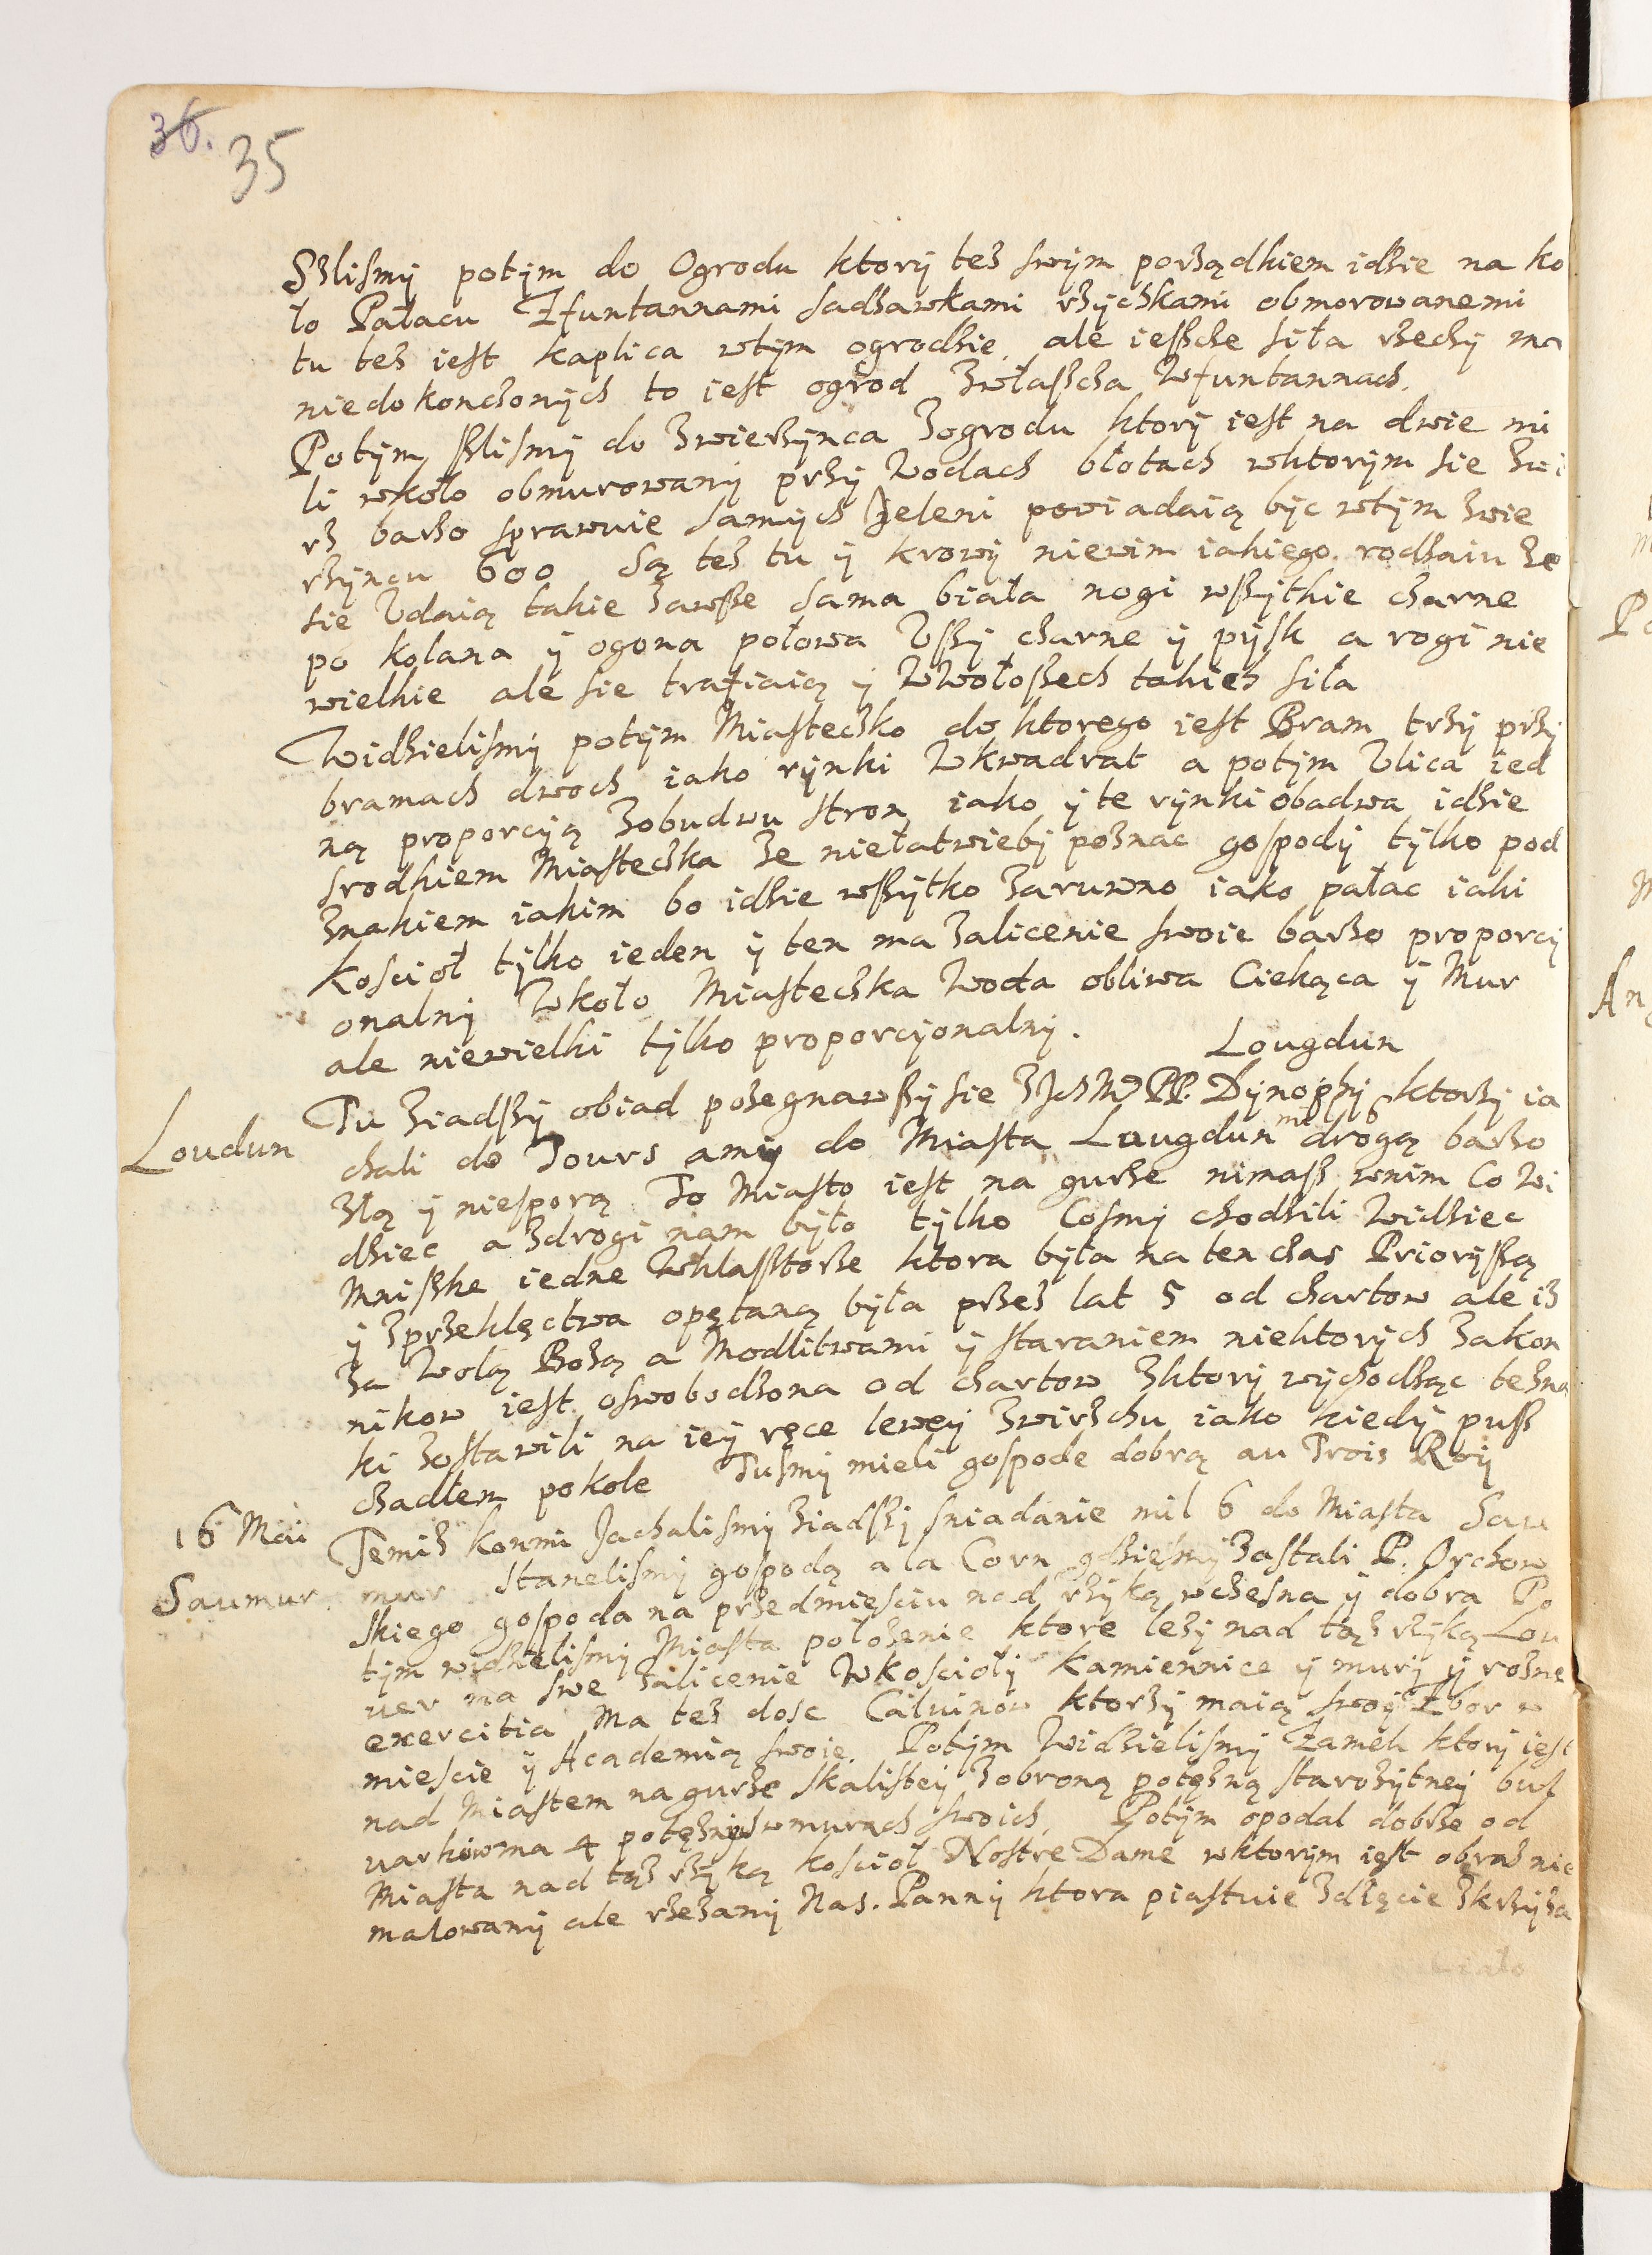 36. 35
Szlismy potym do Ogrodu ktory tez swym porządkiem idzie na ko
ło Pałacu Zfuntannami sadzawkami rzyczkami obmorowanemi
tu tez iest kaplica wtym ogrodzie, ale ieszcze siła rzeczy ma
niedokonczonych to iest ogrod zwłaszcza Wfuntannach.
Potym szlismy do zwierzynca zogrodu ktory iest na dwie mi
li wkoło obmurowany przy Wodach błotach wktorym sie zwi
rz barzo sprawuie samych Jeleni powiadaią byc wtym zwie
rzyncu 600 są tez tu y krowy niewim iakiego rodzaiu ze
sie Vdaią takie zawsze sama biała nogi wszytkie czarne
po kolana y ogona połowa Vszy czarne y pysk a rogi nie
wielkie ale sie trafiaią y WWołoszech takich siła
Widzielismy potym Miasteczko do ktorego iest Bram trzy przy
bramach dwoch iako rynki Wkwadrat a potym Vlica ied
ną proporcyą zobudwu stron iako y te rynki obadwa idzie
srodkiem Miasteczka ze niełatwieby poznac gospody tylko pod
znakiem iakim bo idzie wszytko zaruwno iako pałac iaki
Koscioł tylko ieden y ten ma zalicenie swoie barzo proporcy
onalny Wkoło Miasteczka Woda obliwa Ciekąca y Mur
ale niewielki tylko proporcyonalny.
Lougdun
Loudun
Tu ziadszy obiad pozegnawszy sie z PP. Dynophy ktorzy ia
chali do Tours a my do Miasta Lougdun mil 6 drogą barzo
złą y niesporą To Miasto iest na gurze nimasz wnim Co Wi
dziec a zdrogi nam było tylko Cosmy chodzili Widziec
Mniszke iedne Wklasztorze ktora była na ten czas Prioryszą
y zprzeklęctwa opętaną była przez lat 5 od czartow ale iz
za Wolą Bozą a Modlitwami y staraniem niektorych zakon
nikow iest oswobodzona od czartow zktory wychodząc te zna
ki zostawili na iey ręce lewey zwirzchu iako kiedy pusz
czadłem pokole Tusmy mieli gospode dobrą au Trois Roy
16 Mai
Temiz konmi Jachalismy ziadszy sniadanie mil 6 do Miasta Sau
Saumur
mur stanelismy gospodą a la Corn gdziesmy zastali P. Orchow
skiego gospoda na przedmiesciu nad rzyką wczesna y dobra Po
tym widzielismy Miasta połozenie ktore lezy nad tąz rzyką Lou
uer ma swe zalicenie Wkoscioły Kamiennice y mury y rozne
exercitia Ma tez dosc Calwinow ktorzy maią swoy Zbor w
miescie y Academią swoie. Potym Widzielismy Zamek ktory iest
nad Miastem na gurze skalistey zobroną potęzną starozytney bul
warkow ma 4 potęznych w murach swoich, Potym opodal dobrze od
Miasta nad tąz rzyką koscioł Nostre Dame wktorym iest obraz nie
malowany ale rzezany Nas. Panny ktora piastuie zdięcie zkrzyza